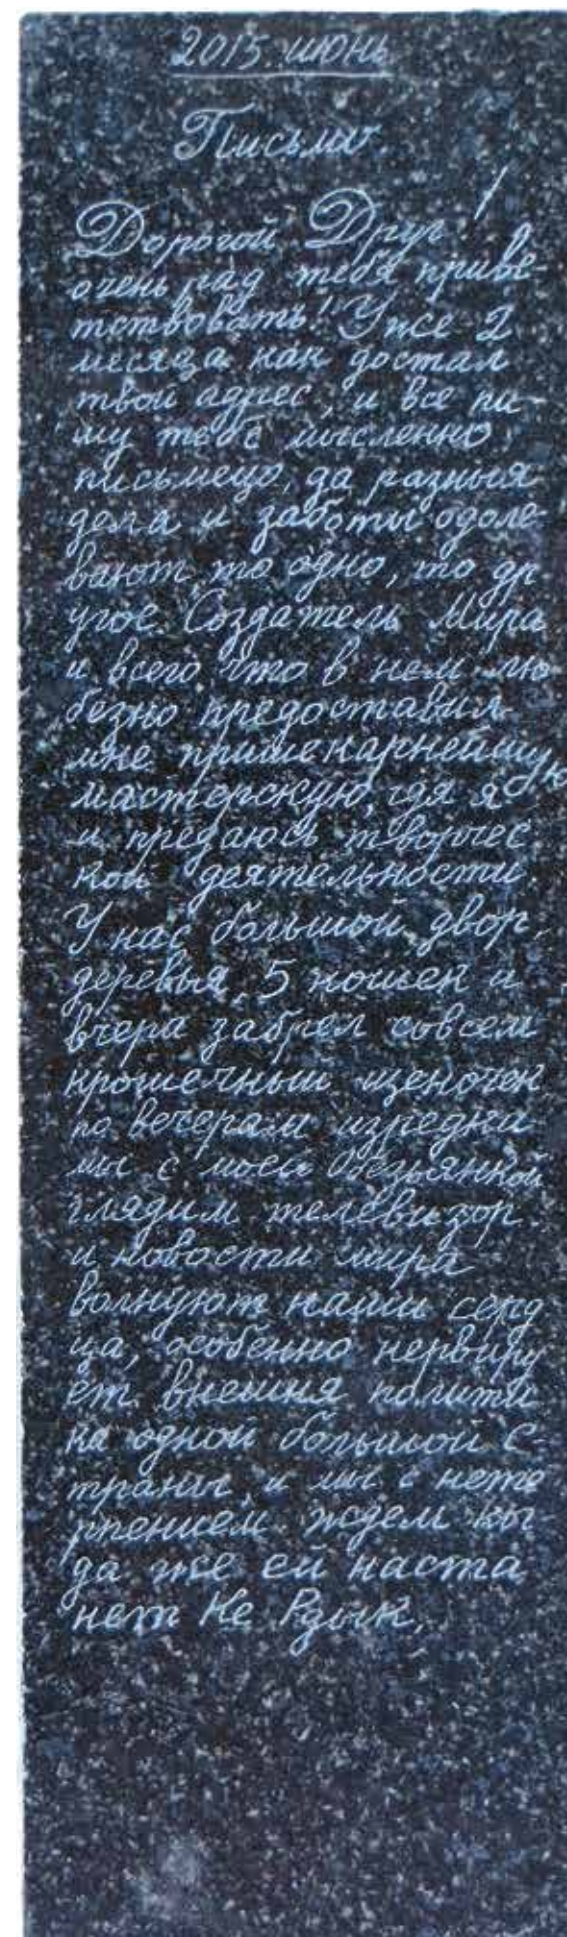 2015 июнь
Письмо
Дорогой Друг!
очень рад тебя приве-
тствовать! Уже 2
месяца как достал
твой адрес, и все пи-
шу тебе мысленно
письмецо, да разныя
дела и заботы одоле-
вают то одно, то др-
угое. Создатель Мира
и всего что в нем лю-
безно предоставил
мне пришекарнейшую
мастерскую, гдя я
и предаюсь творчес
кой деятельности
У нас большой двор,
деревья, 5 кошек и
вчера забрел совсем
крошечный щеночек
по вечерам изредки
мы с моей обезьянкой
глядим телевизор
и новости мира
волнуют наши серд
ца, особенно нервиру
ет внешня полити
ка одной большой с-
траны, и мы с нете
рпением ждем ко-
да же ей наста
нет Не Рдык,